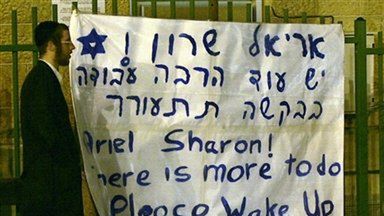 אריאל שרון !
יש עוד הרבה עבודה
בבקשה תתעורר
Ariel Sharon!
here is more to do
Please Wake Up